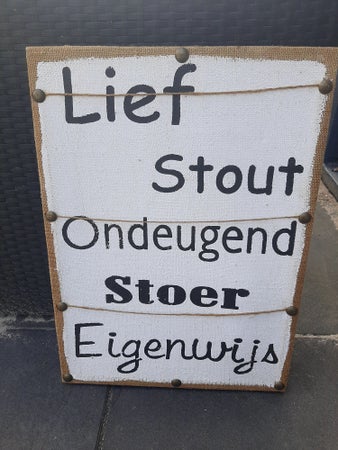 Lief
Stout
Ondeugend
Stoer
Eigenwijs